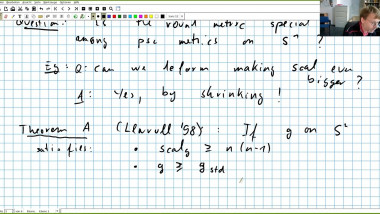 Question: Is the round metric special
among psc metrics on Sⁿ ?
Eg: Q: can we deform making scal even bigger ?
A: Yes, by shrinking !
Theorem A (Llarull '98) : If g on Sⁿ
satisfies: • scal_g ≥ n(n-1)
• g ≥ g_std